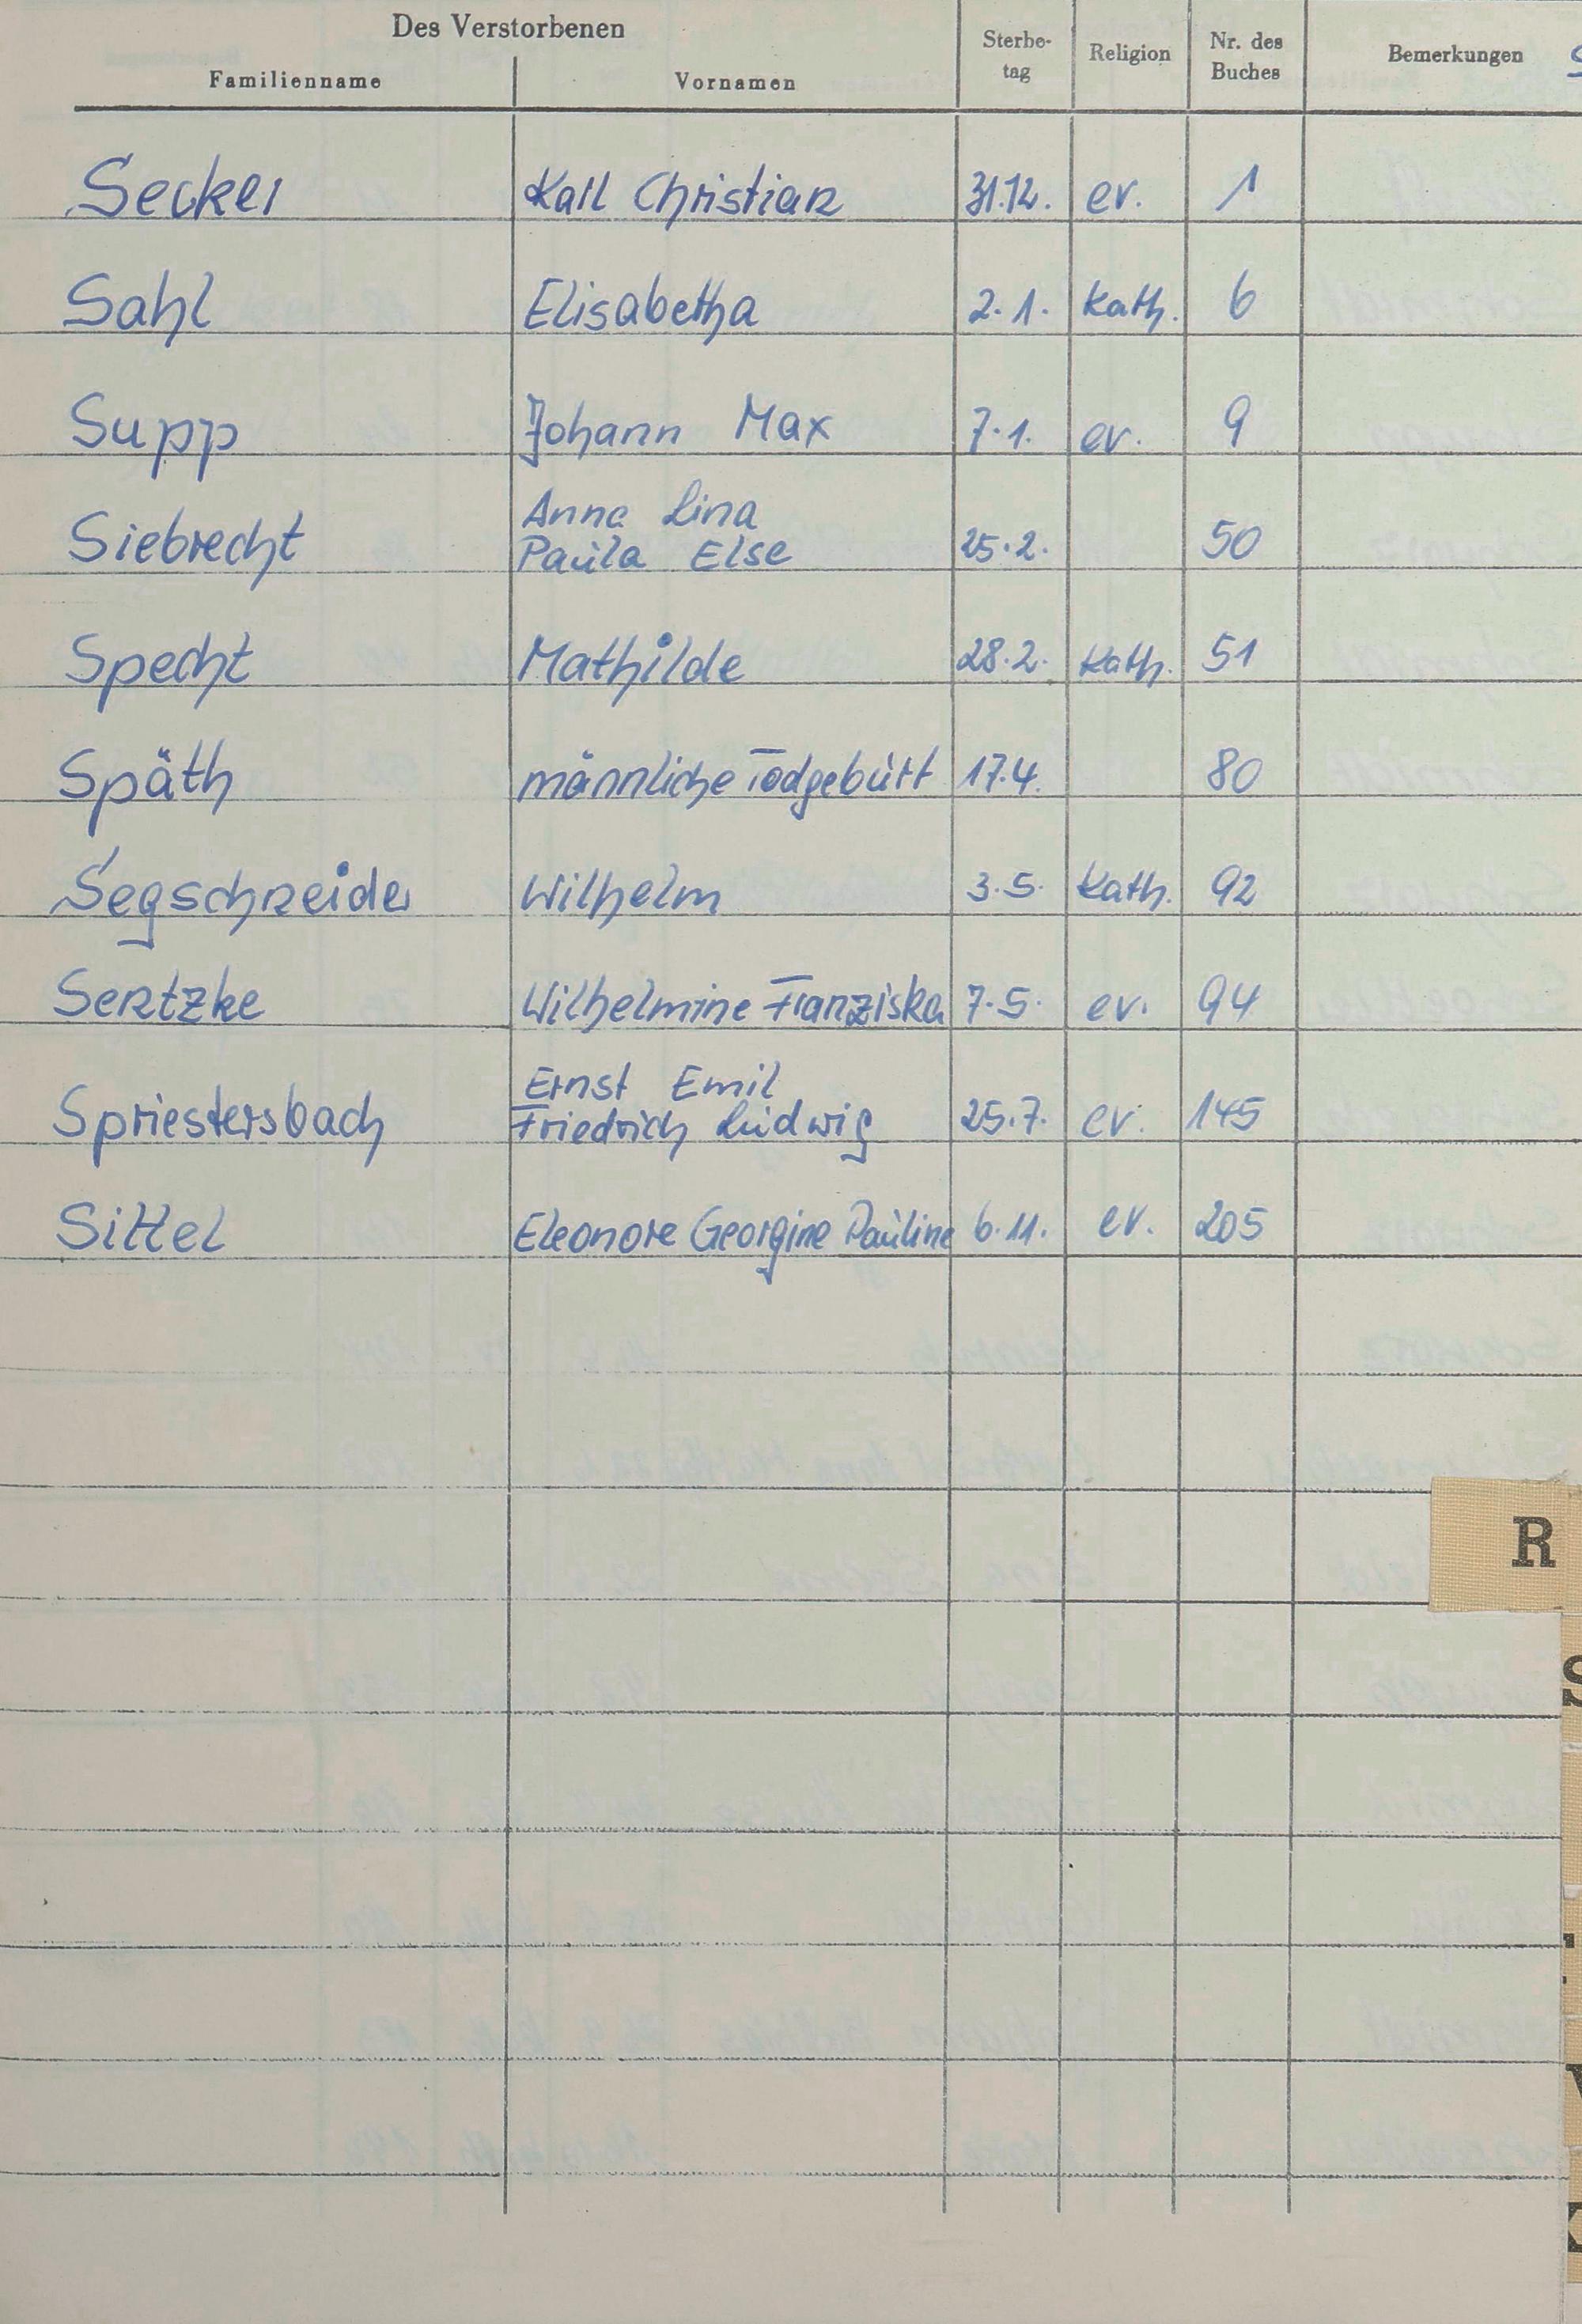 Des Verstorbenen
Familienname Vornamen Sterbe- tag Religion Nr. des Buches Bemerkungen
Secker Karl Christian 31.12. ev. 1
Sahl Elisabetha 2.1. Kath. 6
Supp Johann Max 7.1. ev. 9
Anna Lina
Siebrecht Paula Else 25.2. 50
Specht Mathilde 28.2. Kath. 51
Späth männliche Todgeburt 17.4. 80
Segschneider Wilhelm 3.5. Kath. 92
Sentzke Wilhelmine Franziska 7.5. ev. 94
Ernst Emil
Spriestersbach Friedrich Ludwig 25.7. ev. 145
Sittel Eleonore Georgine Pauline 6.11. ev. 205
R
S